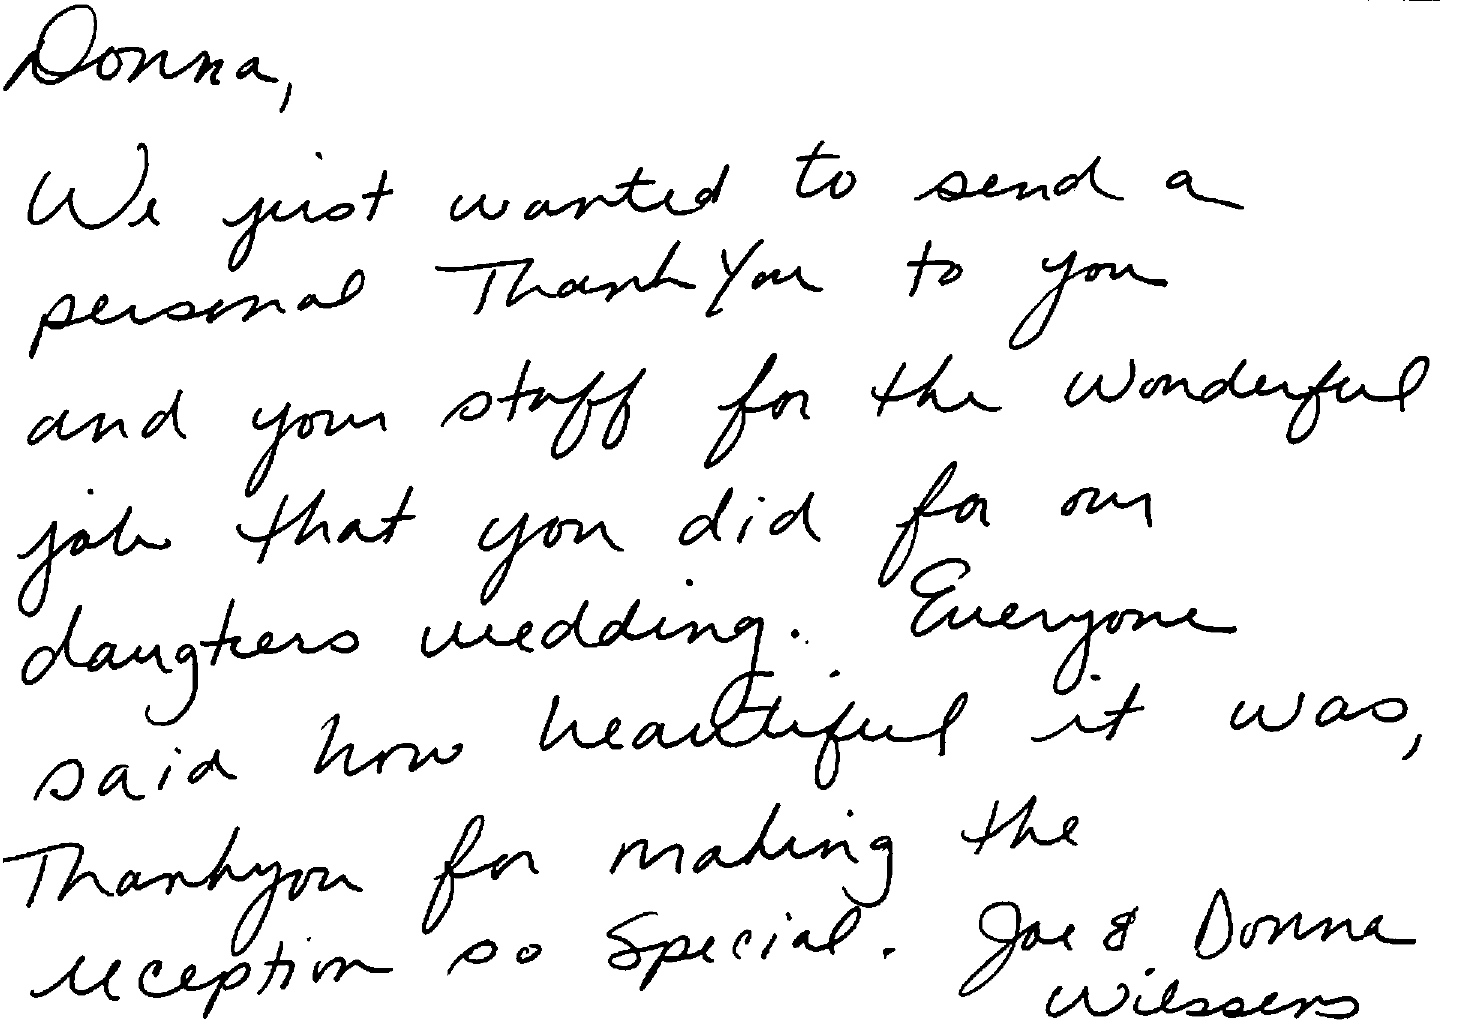 Donna,
We just wanted to send a
personal Thank You to you
and your staff for the wonderful
job that you did for our
daugters wedding. Everyone
said how beautiful it was,
Thankyou for making the
reception so special. Joe & Donna
Wilssens